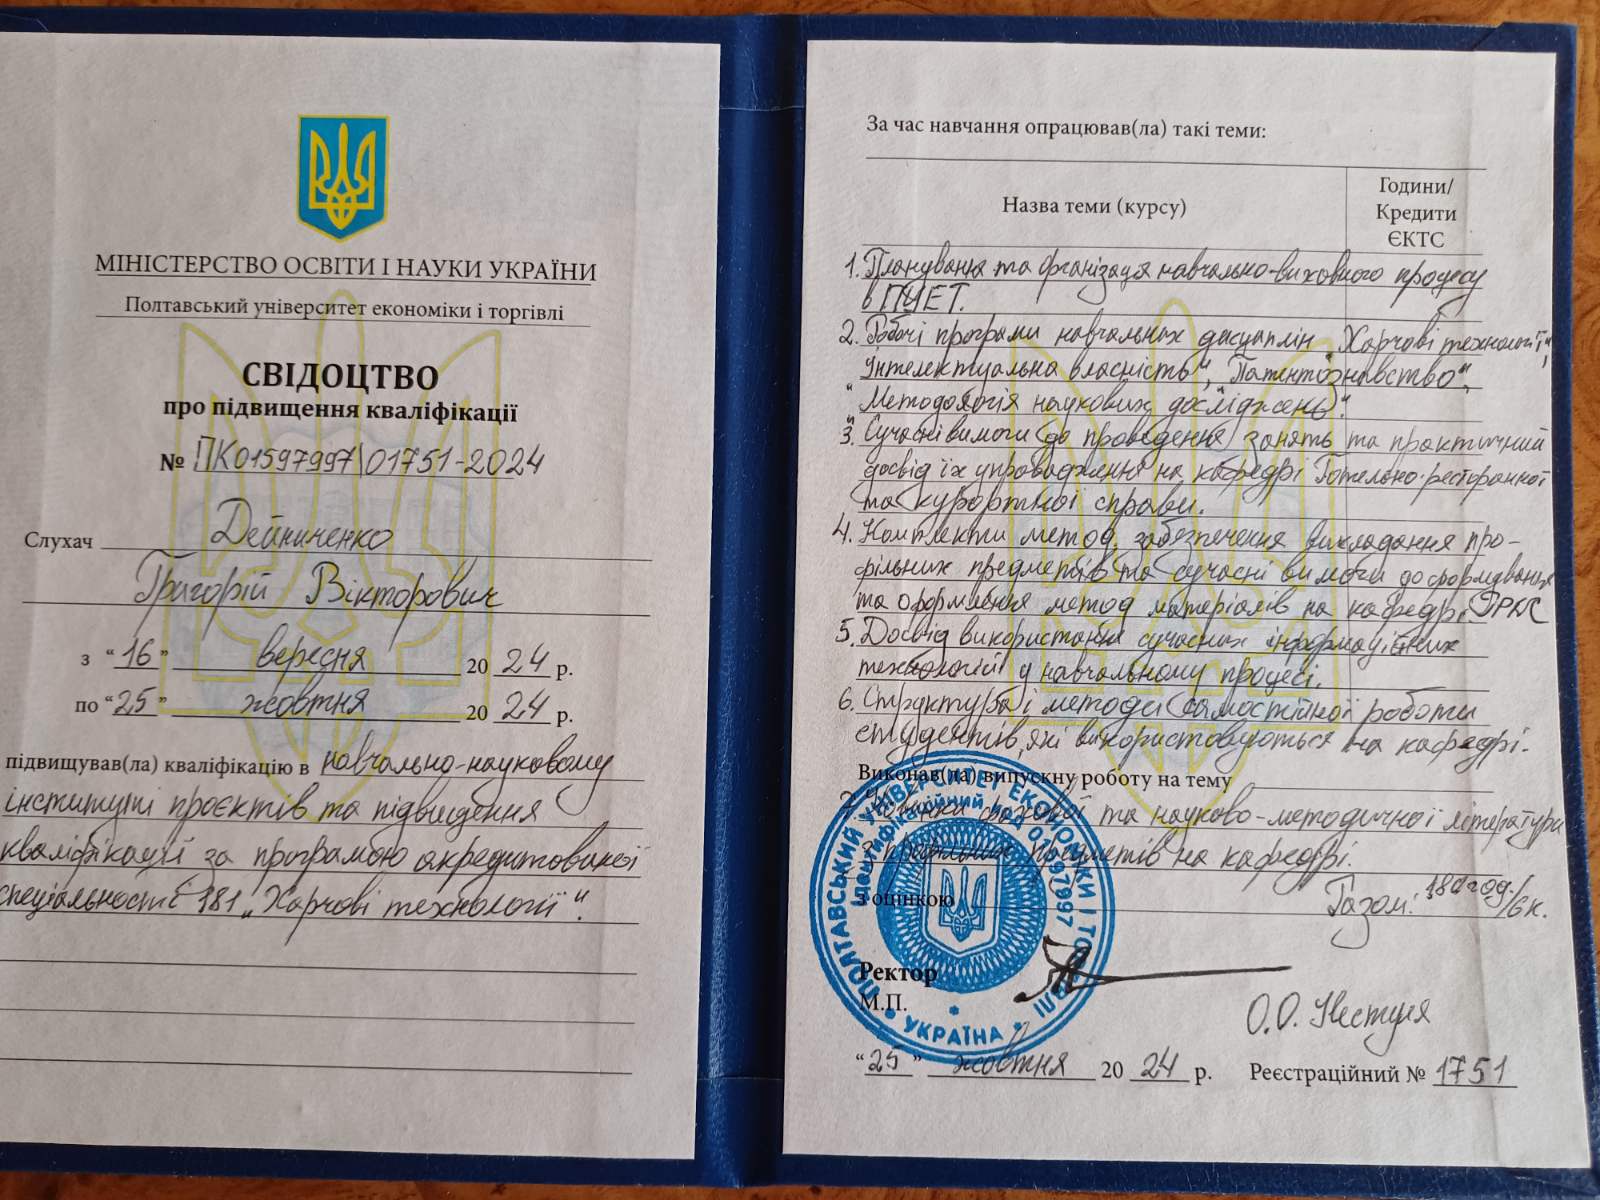 МІНІСТЕРСТВО ОСВІТИ І НАУКИ УКРАЇНИ
Полтавський університет економіки і торгівлі
СВІДОЦТВО
про підвищення кваліфікації
№ ПК01597997\01751-2024
Слухач Дейниченко
Григорій Вікторович
з “16” вересня 2024 р.
по “25” жовтня 2024 р.
підвищував(ла) кваліфікацію в навчально-науковому
інституті проєктів та підвищення
кваліфікації за програмою акредитованої
спеціальності 181 „Харчові технології“.
За час навчання опрацював(ла) такі теми:
Назва теми (курсу)
Години/
Кредити
ЄКТС
1. Планування та організація навчально-виховного процесу
в ПУЕТ.
2. Робочі програми навчальних дисциплін „Харчові технології“,
„Інтелектуальна власність“, „Патентознавство“,
„Методологія наукових досліджень“.
3. Сучасні вимоги до проведення занять та практичний
досвід їх упровадження на кафедрі Готельно-ресторанної
та курортної справи.
4. Комплекти метод. забезпечення викладання про-
фільних предметів та сучасні вимоги до формування
та оформлення метод. матеріалів на кафедрі ГРКС
5. Досвід використання сучасних інформаційних
технологій у навчальному процесі.
6. Структура і методи самостійної роботи
студентів, які використовуються на кафедрі.
Виконав(ла) випускну роботу на тему
7. Новинки фахової та науково-методичної літератури
з профільних предметів на кафедрі.
з оцінкою
Разом: 180 год./6 к.
Ректор
М.П.
О.О. Нестуля
“25” жовтня 2024 р. Реєстраційний № 1751
ПОЛТАВСЬКИЙ УНІВЕРСИТЕТ ЕКОНОМІКИ І ТОРГІВЛІ
* УКРАЇНА *
Ідентифікаційний код 01597997